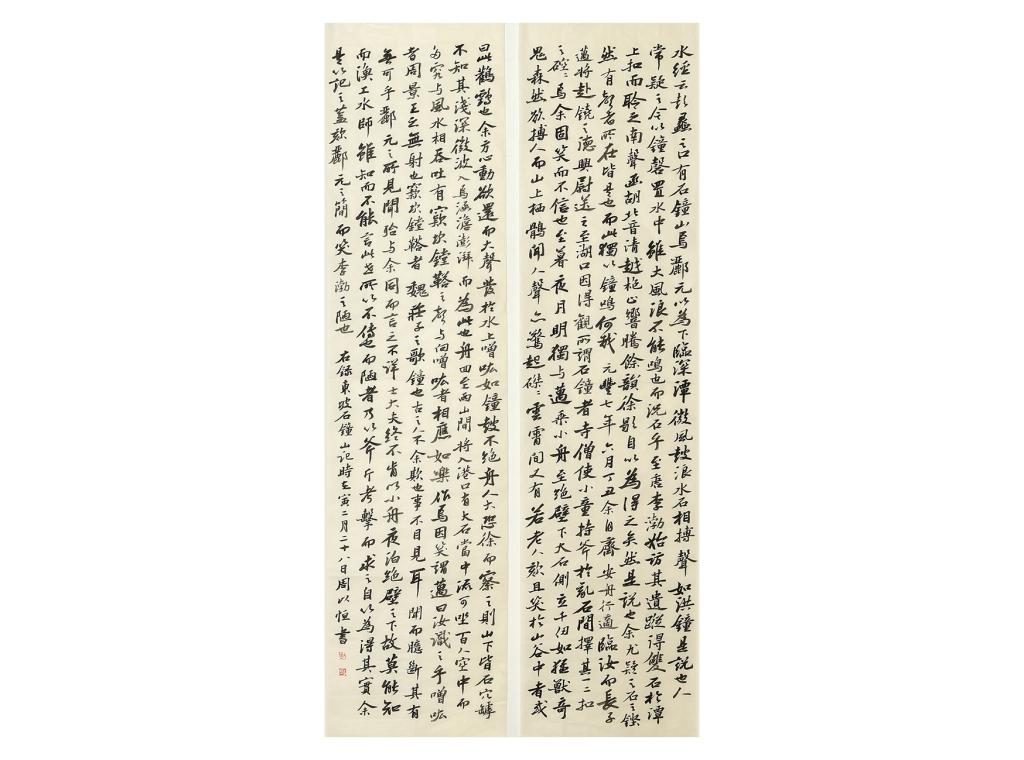 水經云彭蠡之口有石鐘山焉酈元以為下臨深潭微風鼓浪水石相搏聲如洪鐘是說也人
常疑之今以鐘磬置水中雖大風浪不能鳴也而況石乎至唐李渤始訪其遺蹤得雙石於潭
上扣而聆之南聲函胡北音清越枹止響騰餘韻徐歇自以為得之矣然是說也余尤疑之石之鏗
然有聲者所在皆是也而此獨以鐘鳴何哉元豐七年六月丁丑余自齊安舟行適臨汝而長子
邁將赴饒之德興尉送之至湖口因得觀所謂石鐘者寺僧使小童持斧於亂石間擇其一二扣
之硿硿焉余固笑而不信也至暮夜月明獨與邁乘小舟至絕壁下大石側立千仞如猛獸奇
鬼森然欲搏人而山上栖鶻聞人聲亦驚起磔磔雲霄間又有若老人欬且笑於山谷中者或
曰此鸛鶴也余方心動欲還而大聲發於水上噌吰如鐘鼓不絕舟人大恐徐而察之則山下皆石穴罅
不知其淺深微波入焉涵澹澎湃而為此也舟回至兩山間將入港口有大石當中流可坐百人空中而
多竅與風水相吞吐有窾坎鏜鞳之聲與向噌吰者相應如樂作焉因笑謂邁曰汝識之乎噌吰
者周景王之無射也窾坎鏜鞳者魏莊子之歌鐘也古之人不余欺也事不目見耳聞而臆斷其有
無可乎酈元之所見聞殆與余同而言之不詳士大夫終不肯以小舟夜泊絕壁之下故莫能知
而漁工水師雖知而不能言此世所以不傳也而陋者乃以斧斤考擊而求之自以為得其實余
是以記之蓋歎酈元之簡而笑李渤之陋也 右錄東坡石鐘山記時在寅二月二十八日周以恒書